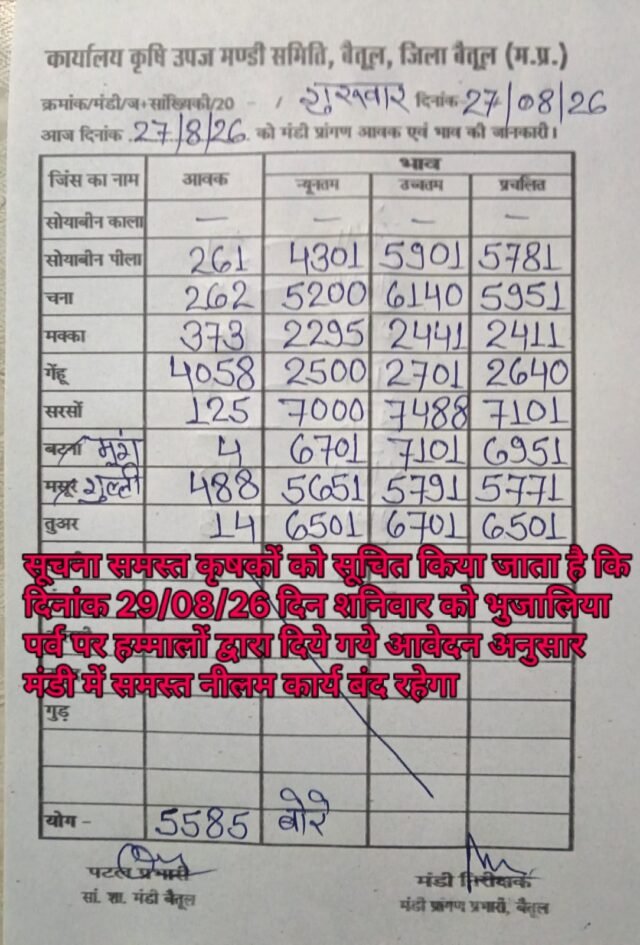 कार्यालय कृषि उपज मण्डी समिति, बैतूल, जिला बैतूल (म.प्र.)
क्रमांक/मंडी/ज+सांख्यिकी/20 - / गुरुवार दिनांक 27/08/26
आज दिनांक 27/8/26 को मंडी प्रांगण आवक एवं भाव की जानकारी।
जिंस का नाम आवक भाव
न्यूनतम उच्चतम प्रचलित
सोयाबीन काला — — — —
सोयाबीन पीला 261 4301 5901 5781
चना 262 5200 6140 5951
मक्का 373 2295 2441 2411
गेंहू 4058 2500 2701 2640
सरसों 125 7000 7488 7101
बटना मूंग 4 6701 7101 6951
मसूर गुल्ली 488 5651 5791 5771
तुअर 14 6501 6701 6501
सूचना समस्त कृषकों को सूचित किया जाता है कि
दिनांक 29/08/26 दिन शनिवार को भुजालिया
पर्व पर हम्मालों द्वारा दिये गये आवेदन अनुसार
मंडी में समस्त नीलम कार्य बंद रहेगा
गुड़
योग - 5585 बोरे
प्रभारी
सां. शा. मंडी बैतूल
मंडी निरीक्षक
मंडी प्रांगण प्रभारी, बैतूल